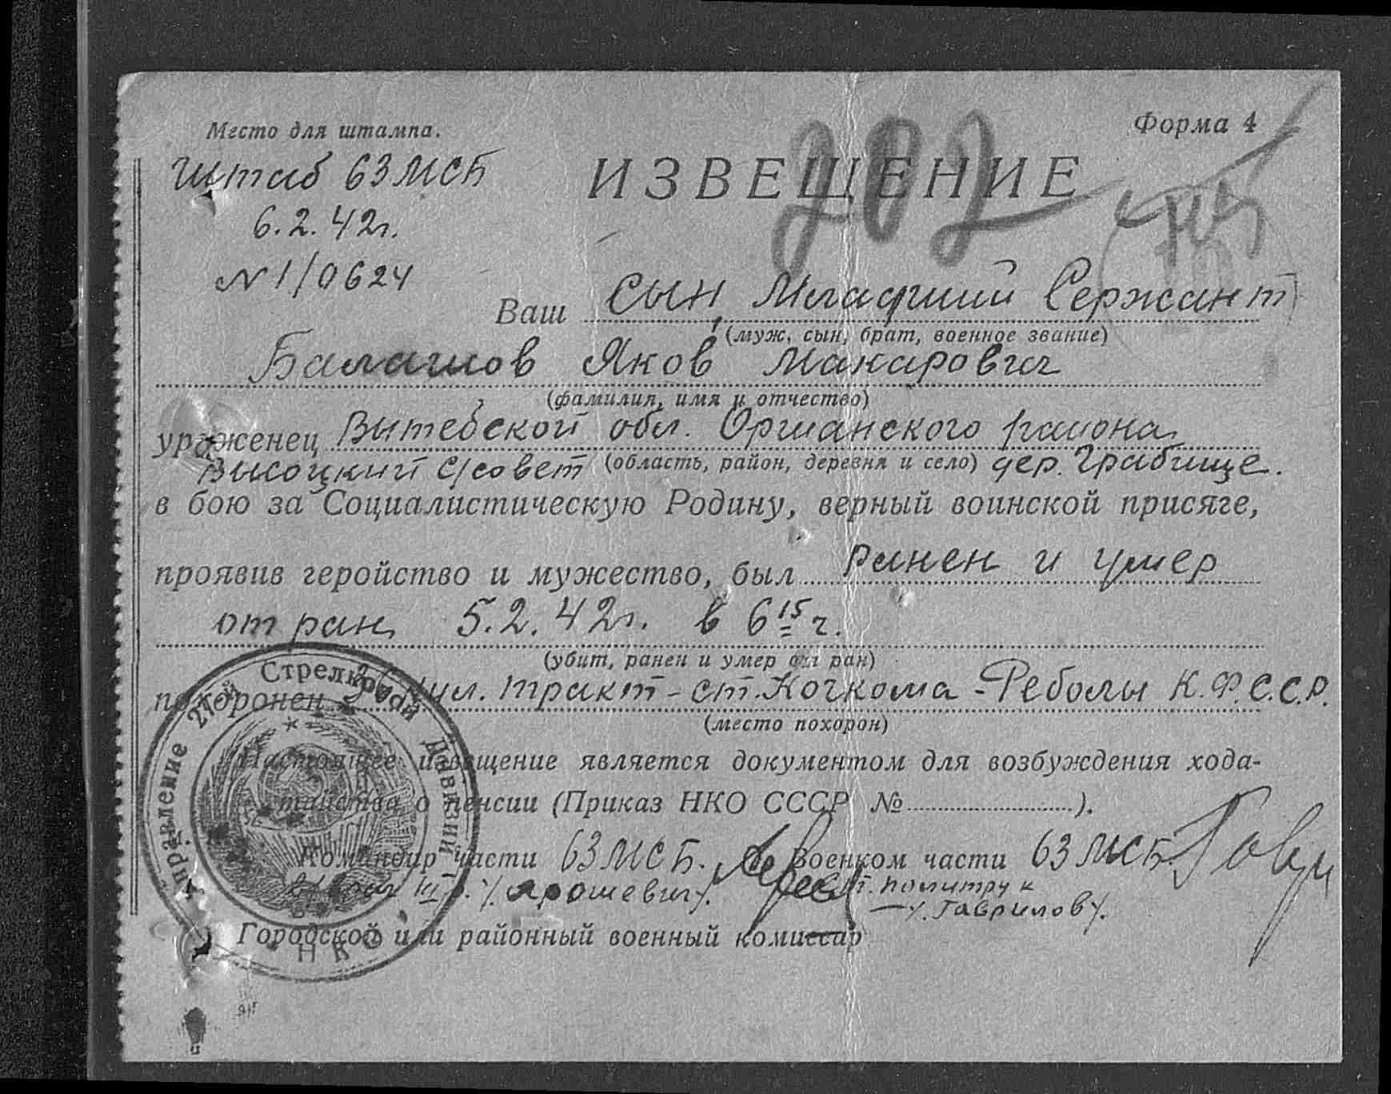 Место для штампа.
Форма 4
Штаб 63 МСБ
6.2.42г.
N 1/0624
202
ИЗВЕЩЕНИЕ
Ваш сын, Младший Сержант
(муж, сын, брат, военное звание)
Балашов Яков Макарович
(фамилия, имя и отчество)
уроженец Витебской обл. Оршанского района
Высоцкий с/совет (область, район, деревня и село) дер. Грабище.
в бою за Социалистическую Родину, верный воинской присяге,
проявив геройство и мужество, был ранен и умер
от ран 5.2.42г. в 6 15 г.
(убит, ранен и умер от ран)
похоронен тракт - ст. Кочкома - Реболы К.Ф.С.С.Р.
(место похорон)
Настоящее извещение является документом для возбуждения хода-
тайства о пенсии (Приказ НКО СССР № ).
Командир части 63 МСБ. Военком части 63 МСБ.
/Ярошевич/. Политрук
/Гаврилов/.
Городской или районный военный комиссар
Управление 27ой Стрелковой Дивизии
НКО